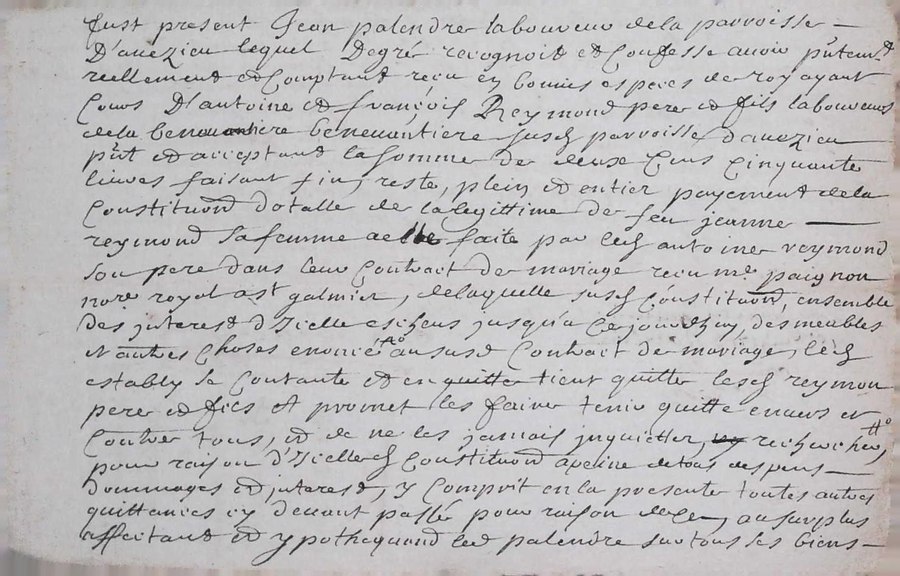 fust present Jean palendre laboureur dela parroisse —
D'auezieu lequel Degré recognoit et Confesse auoir pñtemt
reellement et Comptant receu en bonnes especes de roy ayant
Cours D'antoine et françois Reymond pere et fils laboureurs
dela beneuantiere susd parroisse d'auezieu
pñt et acceptant la somme de deux Cens Cinquante
liures faisant fin, reste, plein et entier payement dela
Constituõn dotalle de la legittime de feu jeanne —
reymond sa femme a elle faite par led antoine reymond
son pere dans leur Contract de mariage receu me paignon
nore royal a st galmier, delaquelle susd Constituõn, ensemble
des jnterest d'Icelle escheus jusqu'a Cejourdhuy, des meubles
et autres Choses enoncé au susd Contract de mariage, led
estably se Contante et en quitte tient quitte lesd reymon
pere et fils et promet les faire tenir quitte enuers et
Contre tous, et de ne les jamais jnquietter, ny rechercher,
pour raison d'Icelle Constituõn a peine de tous despens —
dommages et jnterest, y Comprit en la presente toutes autres
quittances cy deuant passé pour raison de ce, au surplus
affectant et ypothequand led palendre sur tous ses biens —